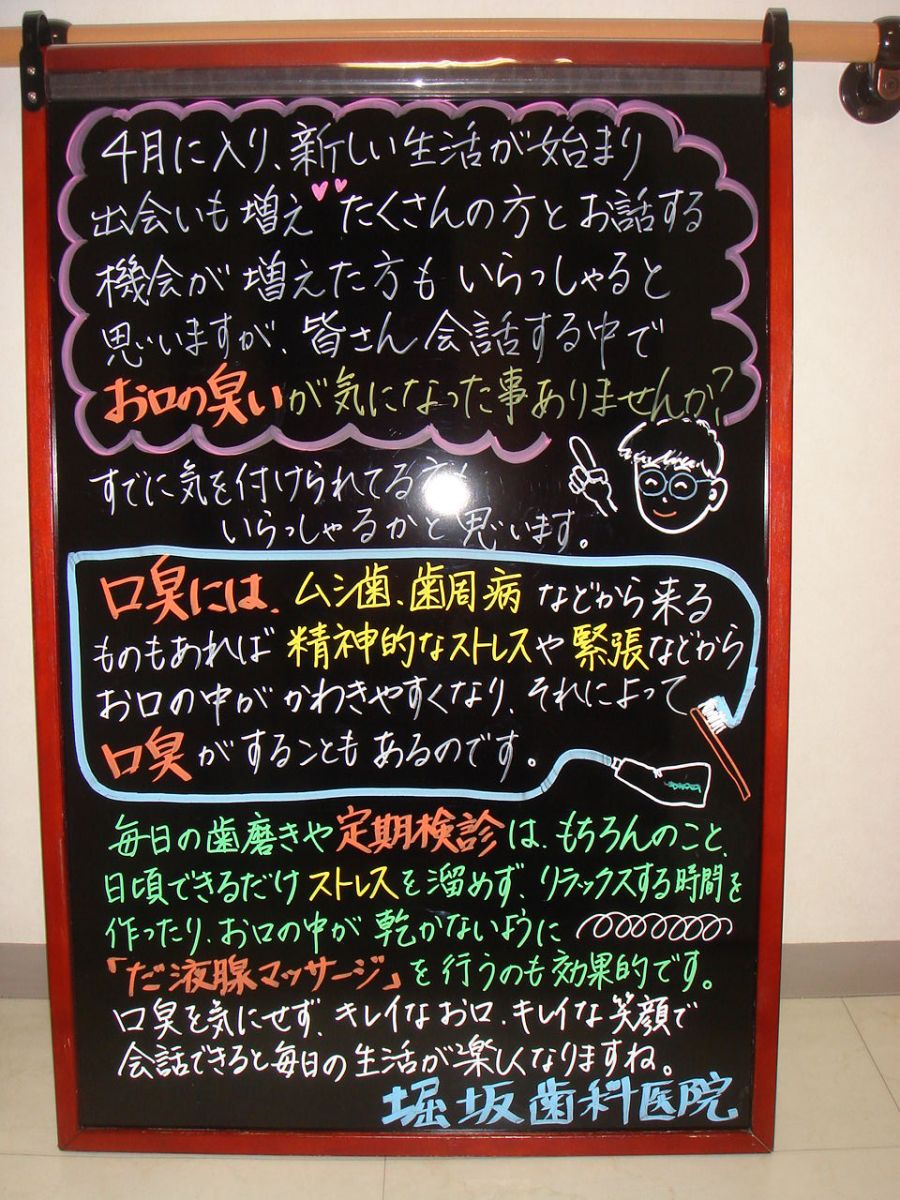 4月に入り、新しい生活が始まり
出会いも増え たくさんの方とお話する
機会が増えた方もいらっしゃると
思いますが、皆さん会話する中で
お口の臭いが気になった事ありませんか?
すでに気を付けられてる方も
いらっしゃるかと思います。
口臭には、ムシ歯、歯周病などから来る
ものもあれば精神的なストレスや緊張などから
お口の中がかわきやすくなり、それによって
口臭がすることもあるのです。
毎日の歯磨きや定期検診は、もちろんのこと、
日頃できるだけストレスを溜めず、リラックスする時間を
作ったり、お口の中が乾かないように
「だ液腺マッサージ」を行うのも効果的です。
口臭を気にせず、キレイなお口、キレイな笑顔で
会話できると毎日の生活が楽しくなりますね。
堀坂歯科医院